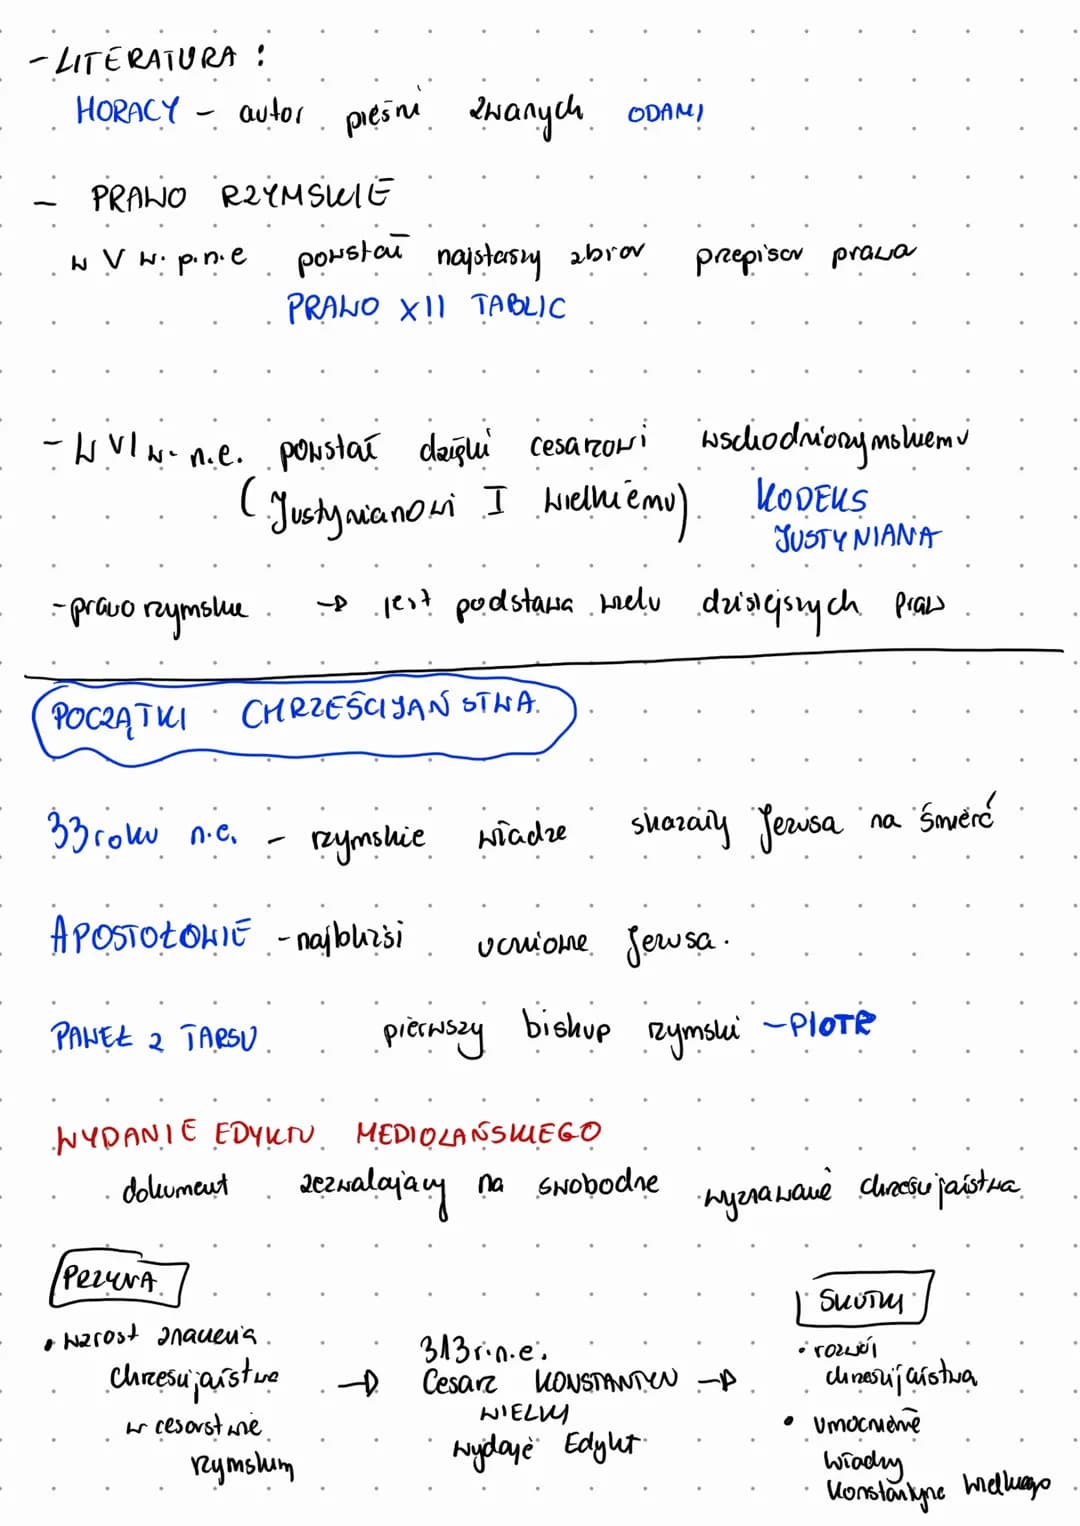 - LITERATURA :
HORACY - autor pieśni zwanych ODAMI
- PRAWO RZYMSKIE
w V w. p.n.e powstał najstarszy zbior przepisov prawa
PRAWO XII TABLIC
- W VI w. n.e. powstał dzięki cesarzowi wschodniorzymskiemu
(Justynianowi I Wielkiemu) KODEKS
JUSTYNIANA
- prawo rzymskie → jest podstawa wielu dzisiejszych praw
POCZĄTKI CHRZEŚCIJAŃSTWA
33 roku n.e. - rzymskie władze skazały Jezusa na śmierć
APOSTOŁOWIE - najbliżsi uczniowie Jezusa.
PAWEŁ Z TARSU pierwszy biskup rzymski - PIOTR
WYDANIE EDYKTU MEDIOLAŃSKIEGO
dokument zezwalający na swobodne wyznawanie chrześcijaństwa
PRZYCZYNA
SKUTKI
• wzrost znaczenia
chrześcijaństwa
w cesarstwie
rzymskim
→ 313 r. n.e.
Cesarz KONSTANTYN →
WIELKI
wydaje Edykt
• rozwój
chrześcijaństwa
• umocnienie
władzy
Konstantyna Wielkiego